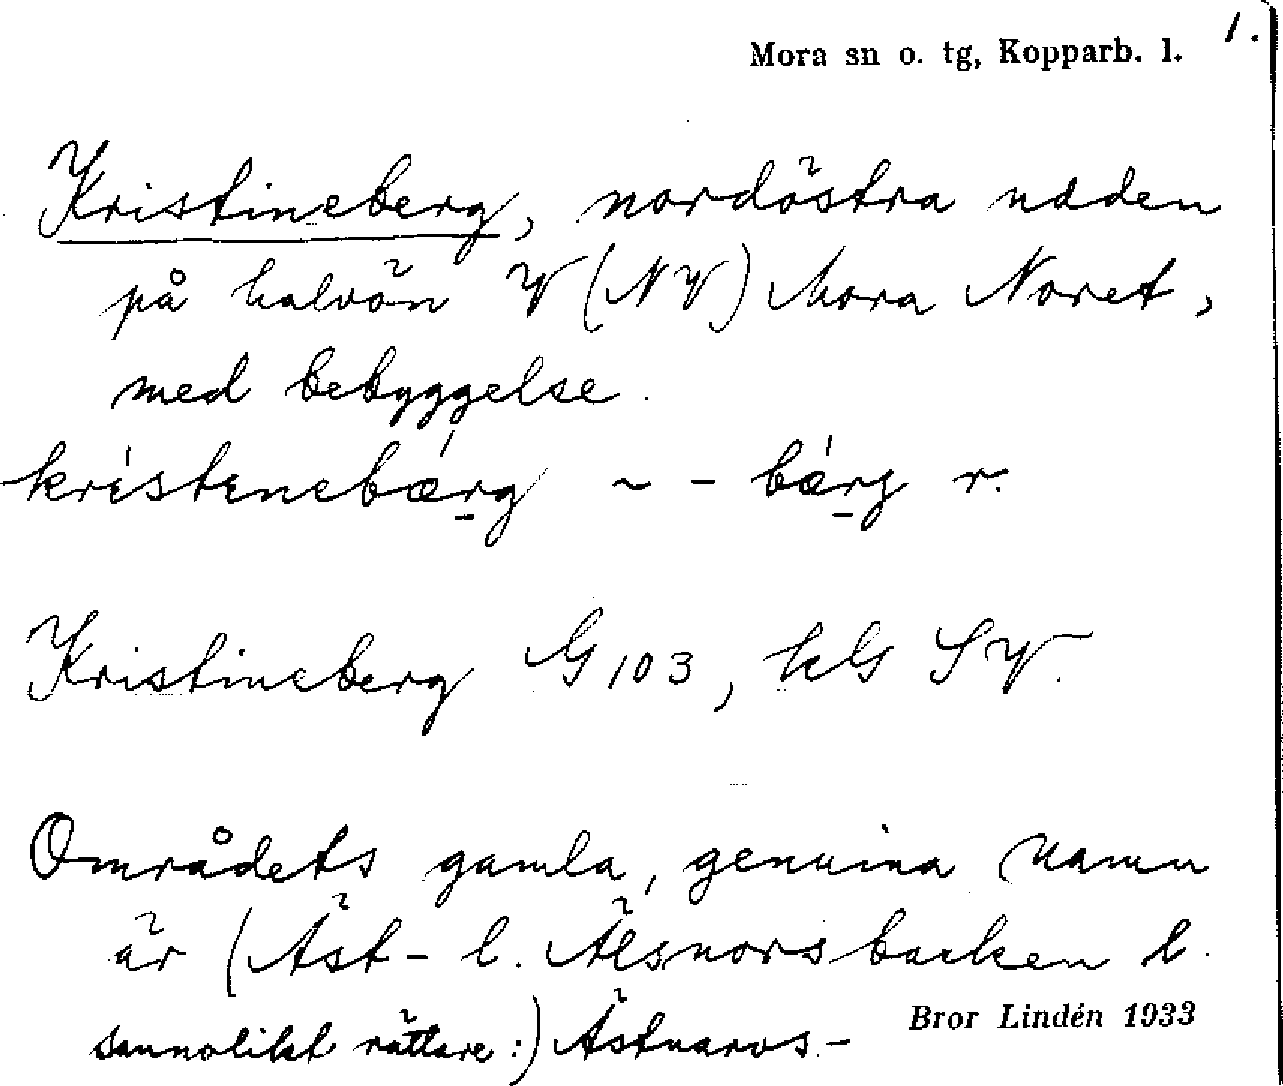 1.
Mora sn o. tg, Kopparb. l.
Kristineberg, nordöstra udden
på halvön V (NV) Mora Noret,
med bebyggelse.
kristenebærg ~ - bærg r.
Kristineberg G 103, hG SV.
Området gamla, genuina namn
är (Äst- l. Älsnorsbacken l.
sannolikt rättare:) Ästnarvs-
Bror Lindén 1933